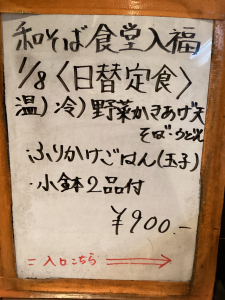 和そば食堂入福
1/8〈日替定食〉
温)冷)野菜かきあげ天
そば・うどん
・ふりかけごはん(玉子)
・小鉢2品付
¥900.-
=入口こちら→